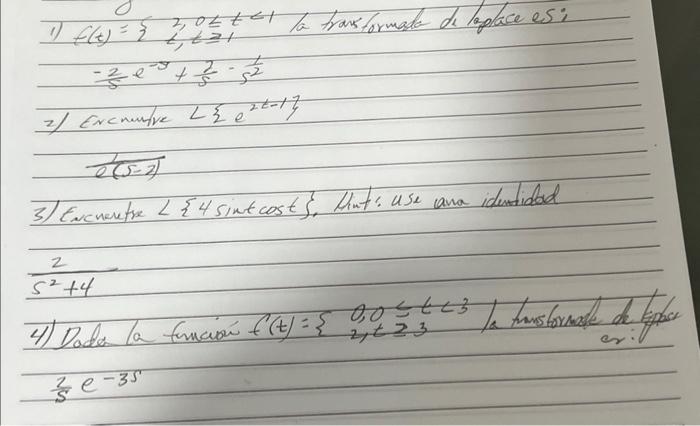 1) f(t) = { 2, 0 ≤ t < 1 la transformada de laplace es:
t, t ≥ 1
-2/s e^-s + 2/s - 1/s^2
2) Encuentre L{e^2t-1}
1/e(s-2)
3) Encuentre L{4 sint cost}. Hint: use una identidad
2
s^2+4
4) Dada la función f(t) = { 0, 0 ≤ t < 3 la transformada de laplace
2, t ≥ 3 es:
2/s e^-3s